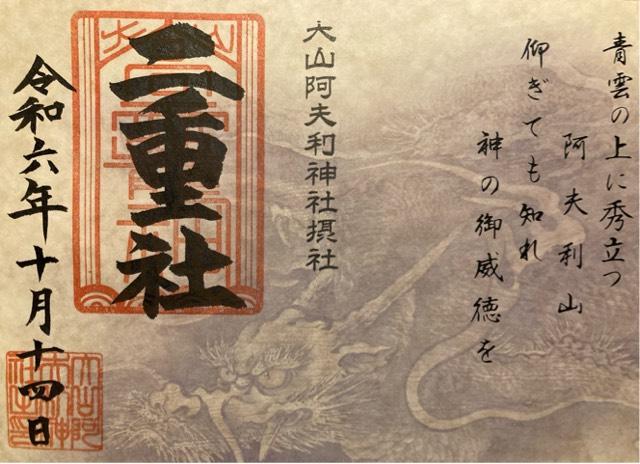 青雲の上に秀立つ
阿夫利山
仰ぎても知れ
神の御威徳を
大山阿夫利神社摂社
二重社
令和六年十月十四日